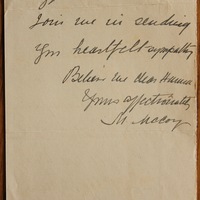 Join me in sending
you heartfelt sympathy
Believe me dear
Yours affectionately
M McCoy